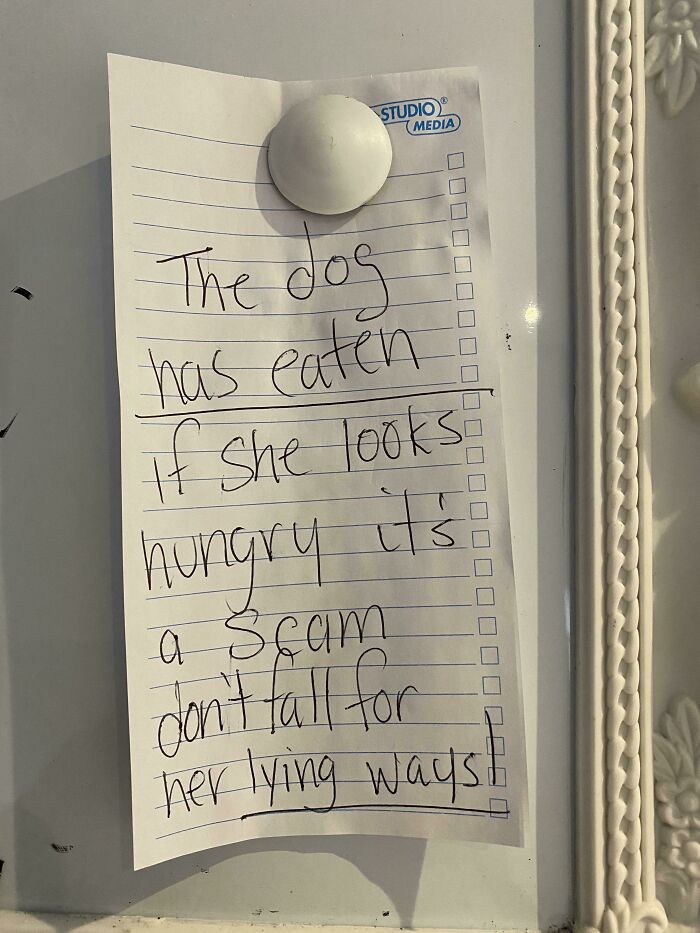 STUDIO®
MEDIA
The dog
has eaten
if she looks
hungry it's
a scam
don't fall for
her lying ways!